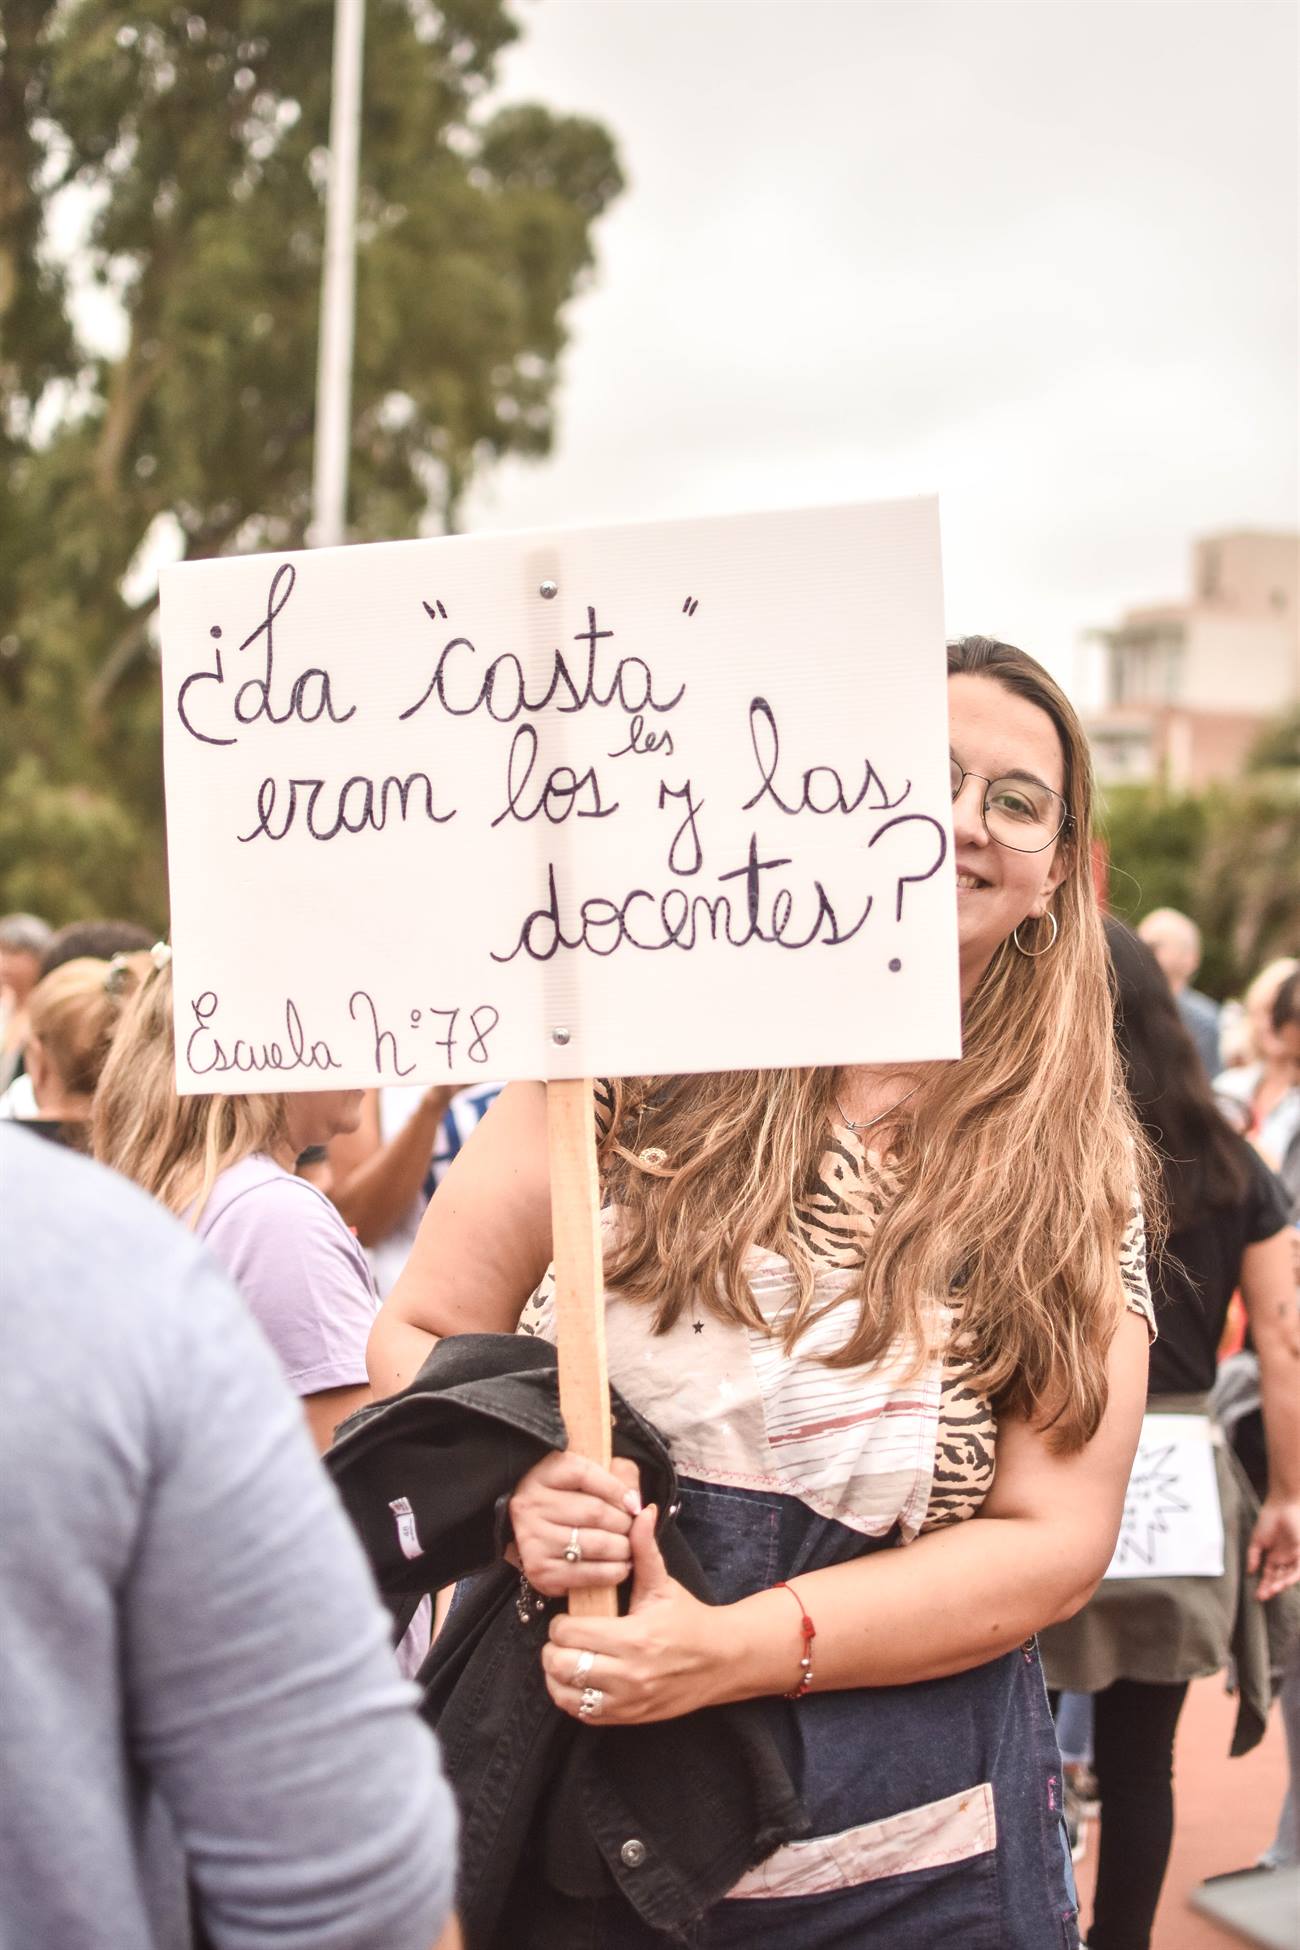 ¿La "casta"
eran los les y las
docentes?
Escuela Nº 78